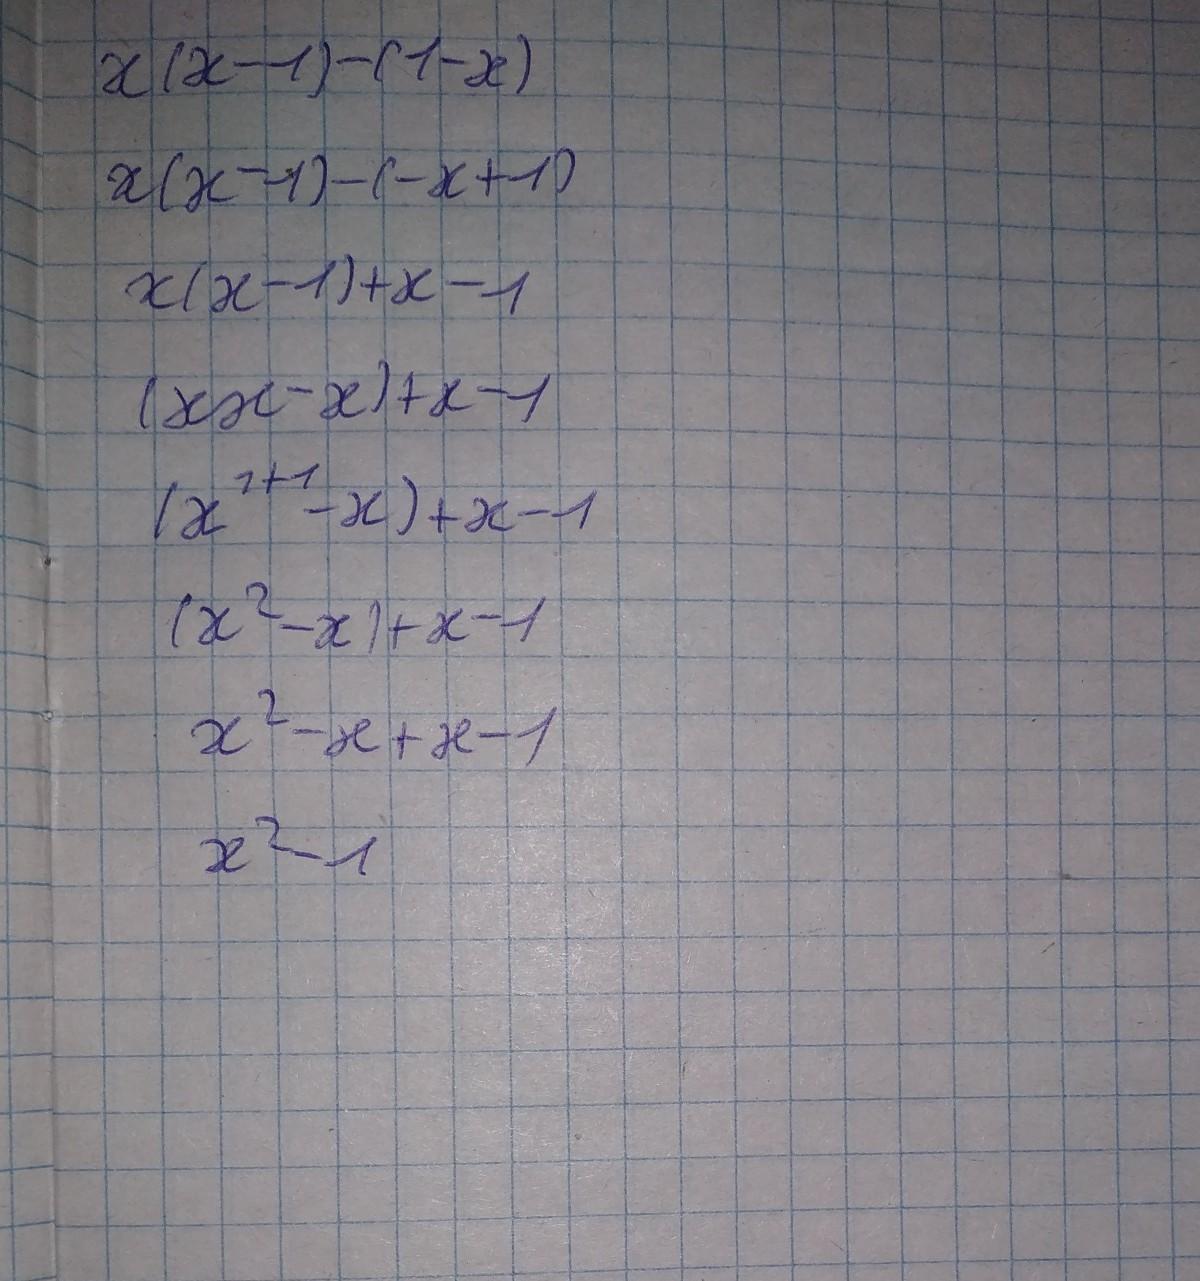 x(x-1)-(1-x)
x(x-1)-(-x+1)
x(x-1)+x-1
(xx-x)+x-1
(x¹⁺¹-x)+x-1
(x²-x)+x-1
x²-x+x-1
x²-1